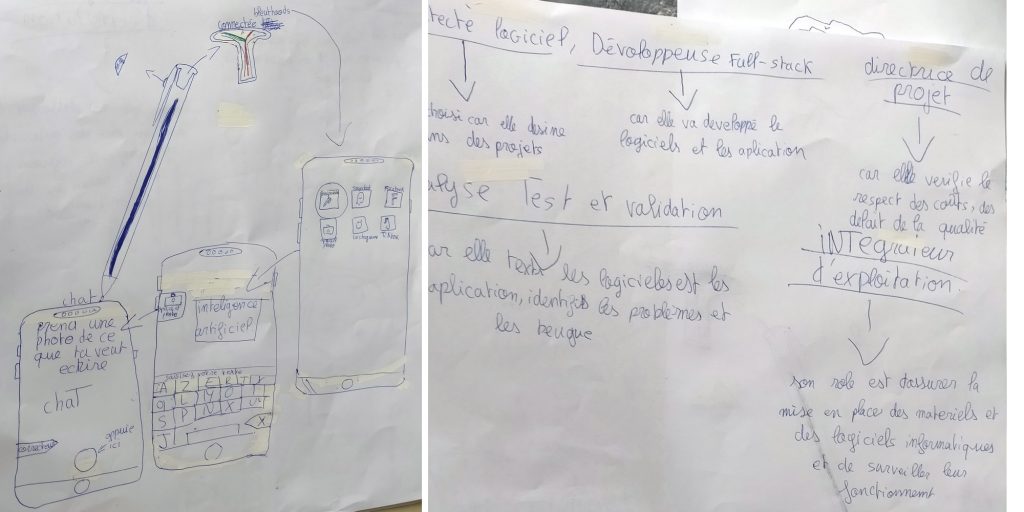 bleuthoods
connectée
chat
prend une
photo de ce
que tu veut
ecrire
chaT
correcteur
appuie
ici
inteligence
artificiel
A Z E R T Y
S P N X
J
Snapchat
Facebook
Instagramme
TikTok
logiciel, Dévoloppeuse Full-stack
car elle desine
des projets
car elle va developpé le
logiciels et les aplication
directrice de
projet
car elle verifie le
respect des coûts, des
delait de la qualité
Test et validation
elle tests les logicieles est les
aplication, identifis les problemes et
les beugue
iNTegraieur
d'exploitation.
son role est d'assurer la
mise en place des materiels et
des logiciels informatiques
et de surveiller leur
fonctionnement